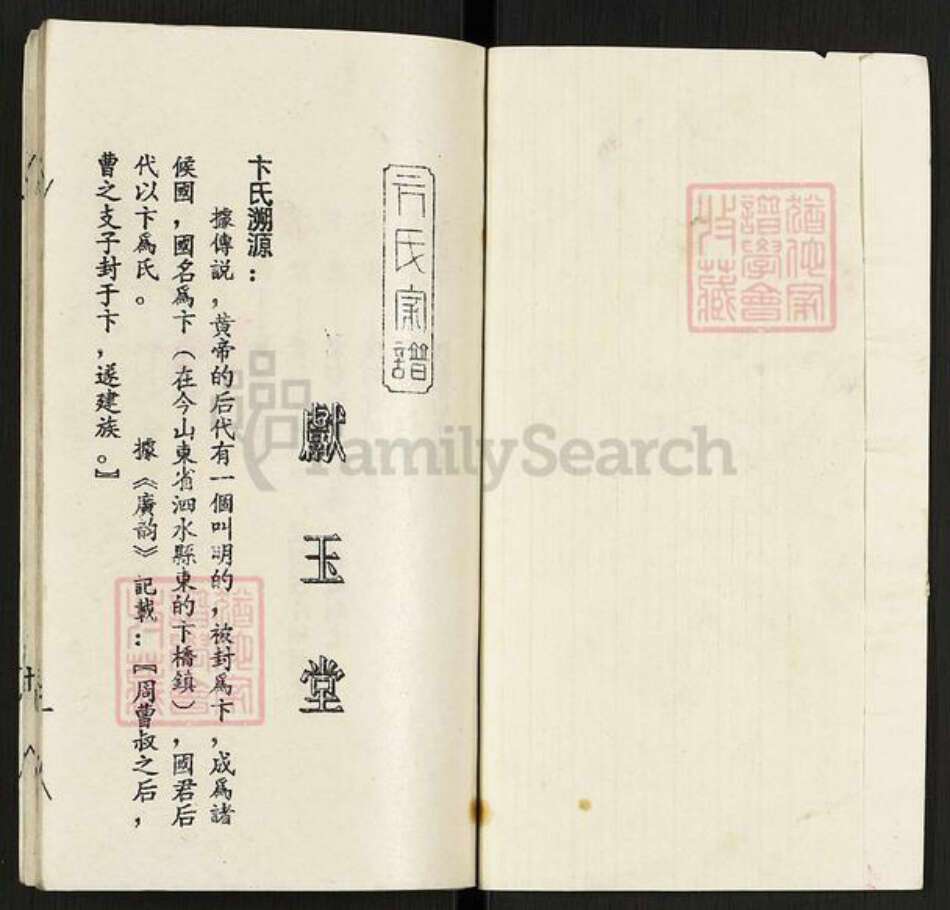 猶他家
譜學會
收藏
卞氏家譜
獻玉堂
卞氏溯源：
據傳説，黄帝的后代有一個叫明的，被封爲卞，成爲諸
候國，國名爲卞（在今山東省泗水縣東的卞橋鎮），國君后
代以卞爲氏。 據《廣韵》記載：『周曹叔之后，
曹之支子封于卞，遂建族。』
猶他家
譜學會
收藏
FamilySearch